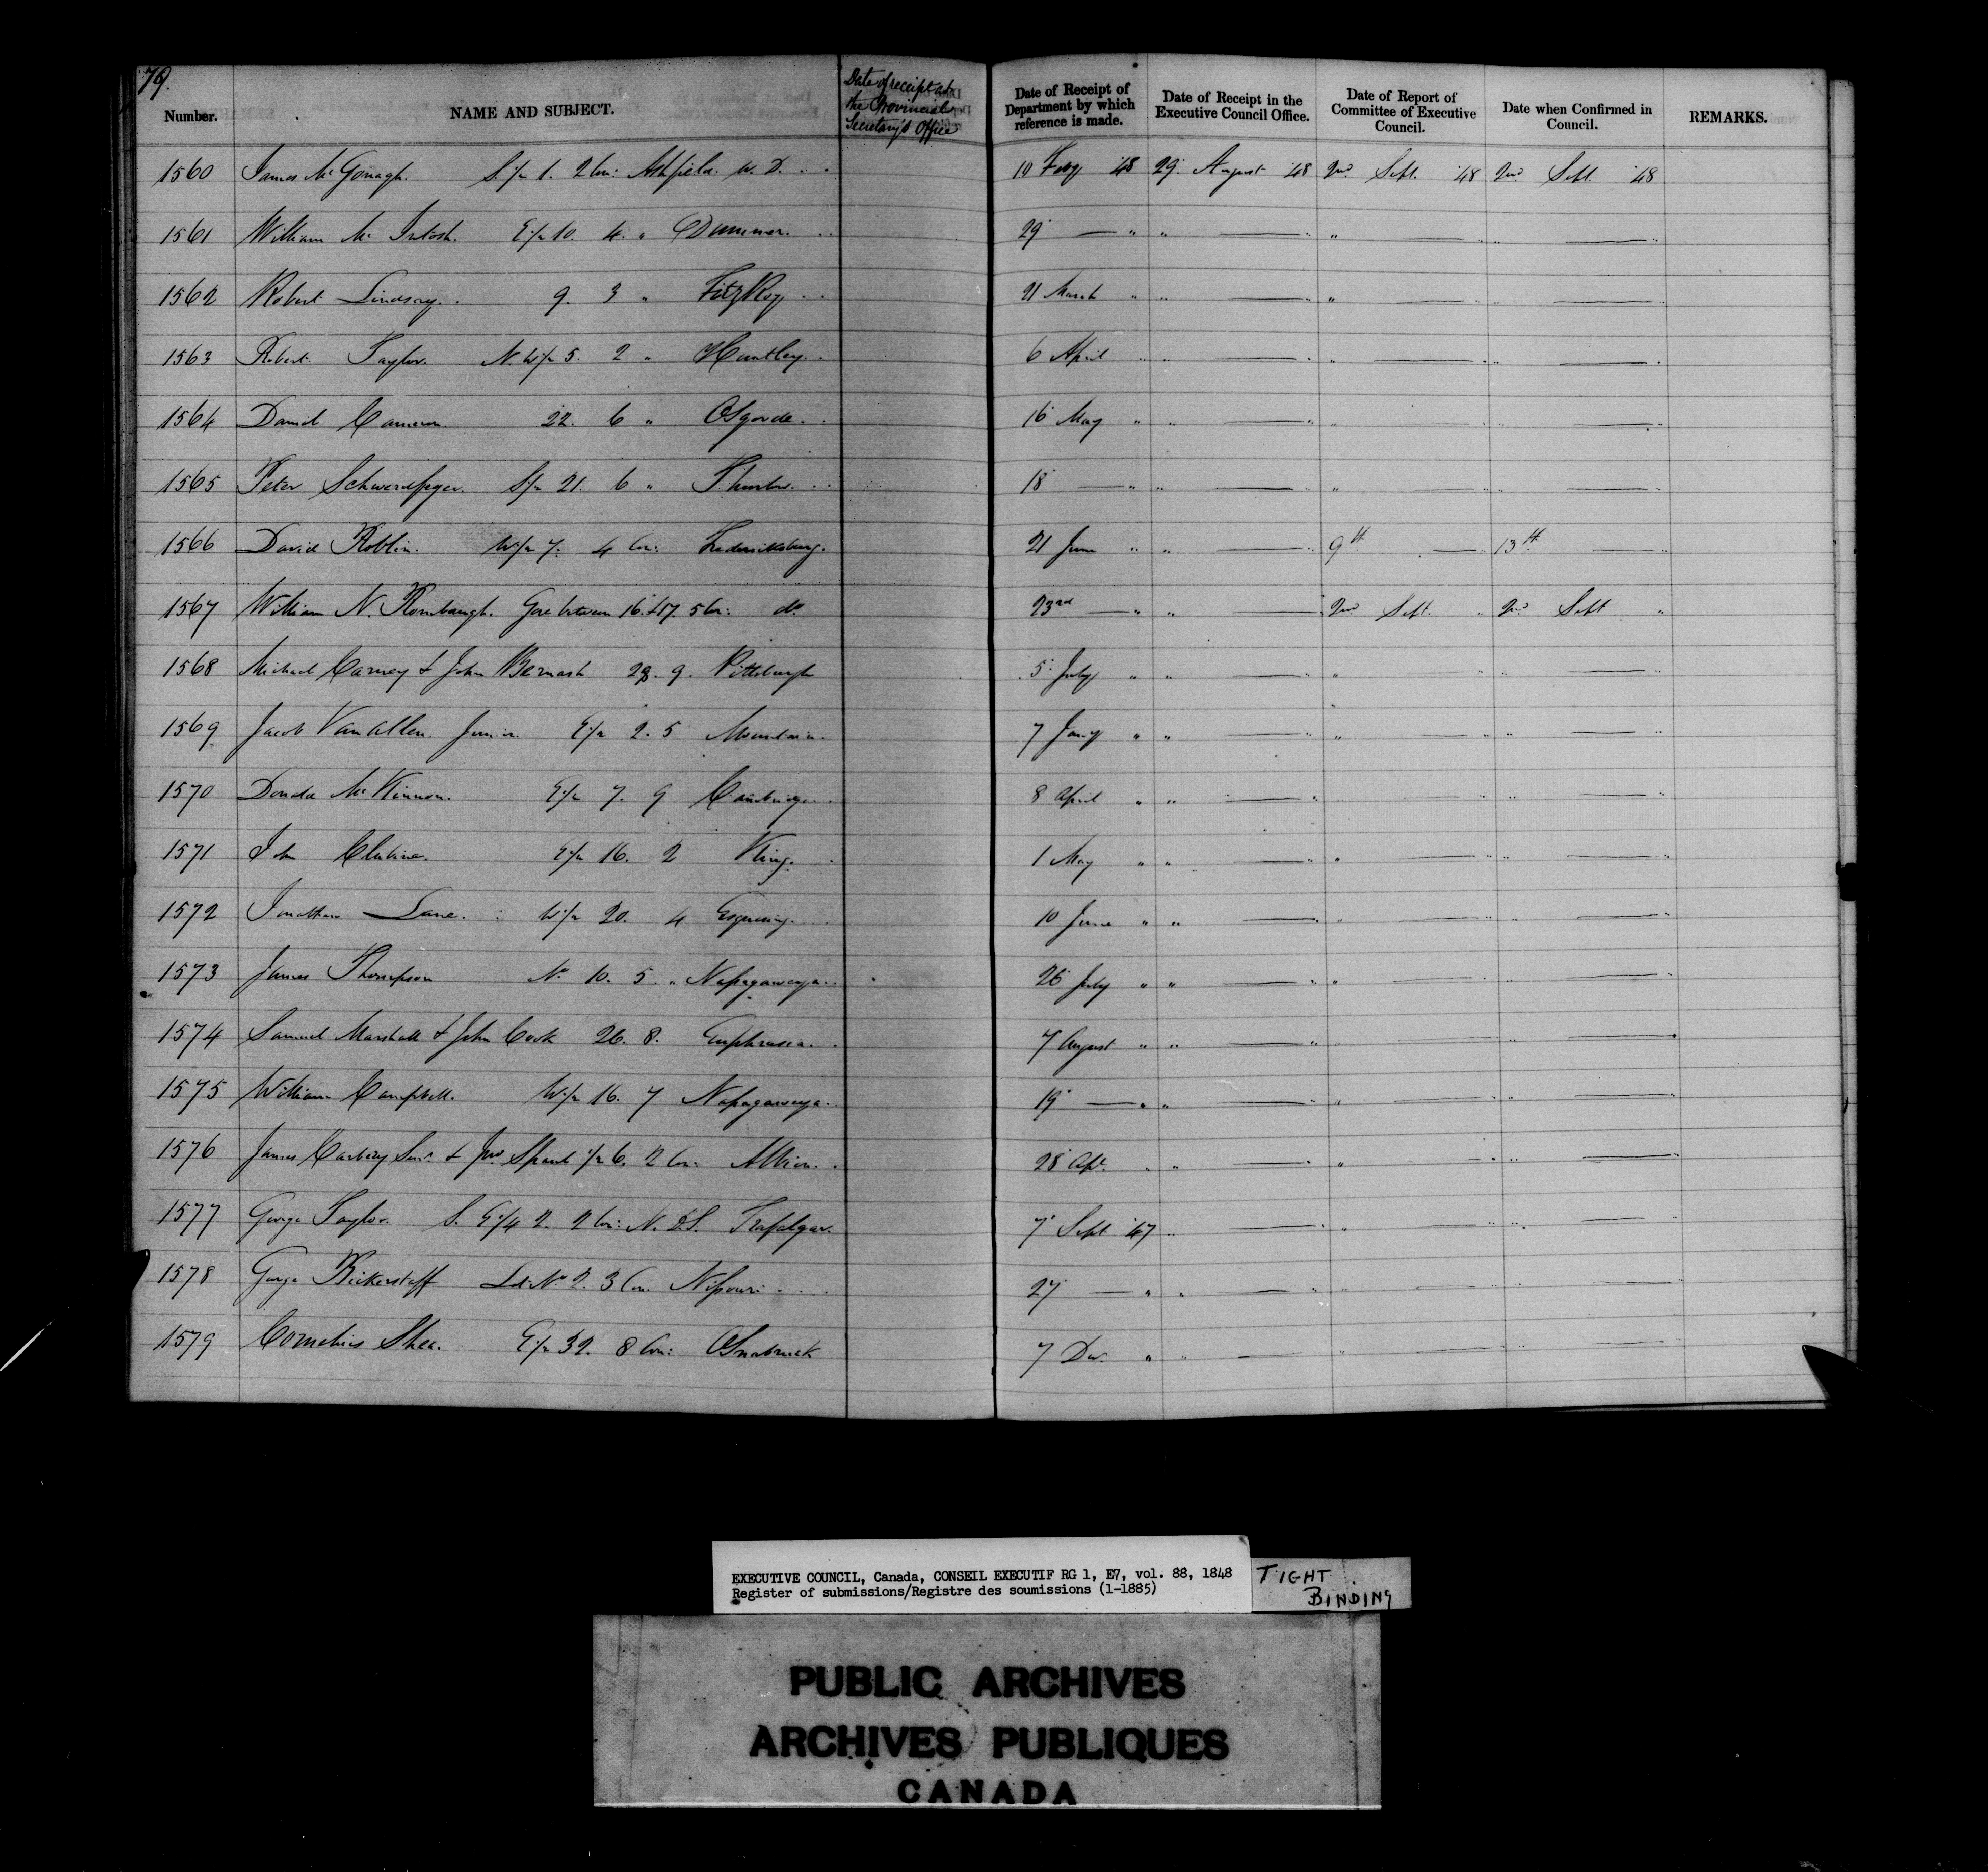 79.
Number. NAME AND SUBJECT. Date of receipt at the Provincial Secretary's Office Date of Receipt of Department by which reference is made. Date of Receipt in the Executive Council Office. Date of Report of Committee of Executive Council. Date when Confirmed in Council. REMARKS.
1560 James McGonagh. S. 1/2 1. 2 Con: Ashfield. W. D. 10 Feby '48 29. August '48 2nd Sept. '48 2nd Sept. '48
1561 William McIntosh. E 1/2 10. 4. " Dummer. 29 — " " — " " — " " — "
1562 Robert Lindsay. 9. 3 " FitzRoy 21 March " " — " " — " " — "
1563 Robert Taylor. N. W 1/2 5. 2 " Huntley. 6 April " " — " " — " " — "
1564 David Cameron 22. 6 " Osgoode. 16 May " " — " " — " " — "
1565 Peter Schwerdfeger. S 1/2 21. 6 " 18 — " " — " " — " " — "
1566 David Roblin. W 1/2 7. 4 Con: Fredericksburg. 21 June " " — " 9th — " 13th — "
1567 William N. Rombaugh. Gore between 16 & 17. 5 Con: do 23rd — " " — 2nd Sept. " 2nd Sept "
1568 Michael Carney & John 9. Pittsburgh 5 July " " — " " — " " — "
1569 Jacob Van Allen Junior. E 1/2 2. 5 Mountain. 7 Jany " " — " " — " " — "
1570 Donald McKinnon. E 1/2 7. 9 Cambridge 8 April " " — " " — " " — "
1571 John E 1/2 16. 2 King. 1 May " " — " " — " " — "
1572 Jonathan Lane. W 1/2 20. 4 Esquesing. 10 June " " — " " — " " — "
1573 James Thompson No 10. 5. " Nassagaweya. 26 July " " — " " — " " — "
1574 Samuel Marshall & John Cook 26. 8. Euphrasia. 7 August " " — " " — " " — "
1575 William Campbell. W 1/2 16. 7 Nassagaweya. 19 — " " — " " — " " — "
1576 James Senr. & Jno 1/2 6. 2 Con: Albion. 28 Apl. " " — " " — " " — "
1577 George Taylor. S. E 1/4 2. 2 Con: N. D.S. Trafalgar. 7 Sept '47 " — " " — " " — "
1578 George Bickerstaff Lot No 2. 3 Con. Nissouri 27 — " " — " " — " " — "
1579 Cornelius Shea. E 1/2 32. 8 Con: Osnabruck 7 Dec. " " — " " — " " — "
EXECUTIVE COUNCIL, Canada, CONSEIL EXECUTIF RG 1, E7, vol. 88, 1848
Register of submissions/Registre des soumissions (1-1885)
TIGHT
BINDING
PUBLIC ARCHIVES
ARCHIVES PUBLIQUES
CANADA